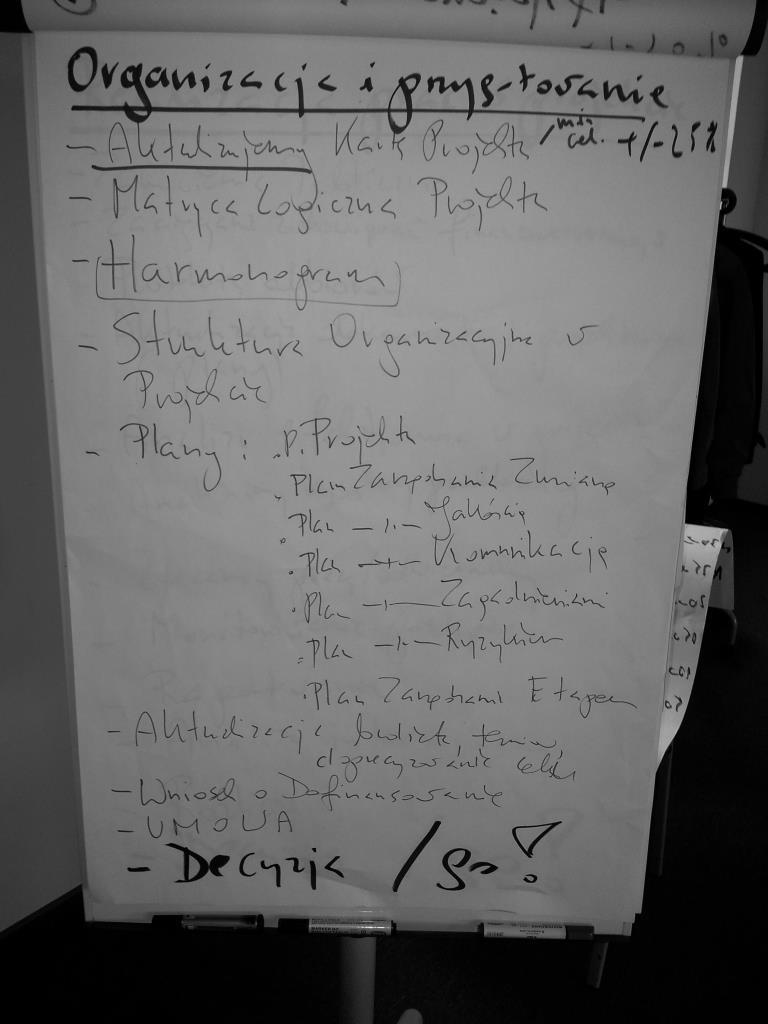 Organizacja i przygotowanie
- Aktualizujemy Kartę Projektu / min cel. +/- 25%
- Matryca Logiczna Projektu
- Harmonogram
- Struktura Organizacyjna w
Projekcie
- Plany : . p. Projektu
. Plan Zarządzania Zmianą
. Plan -"- Jakością
. Plan -"- Komunikacją
. Plan -"- Zagadnieniami
. Plan -"- Ryzykiem
. Plan Zarządzania Etapem
- Aktualizacja budżetu, terminów,
doprecyzowanie celów
- Wniosek o Dofinansowanie
- UMOWA
- Decyzja / go!